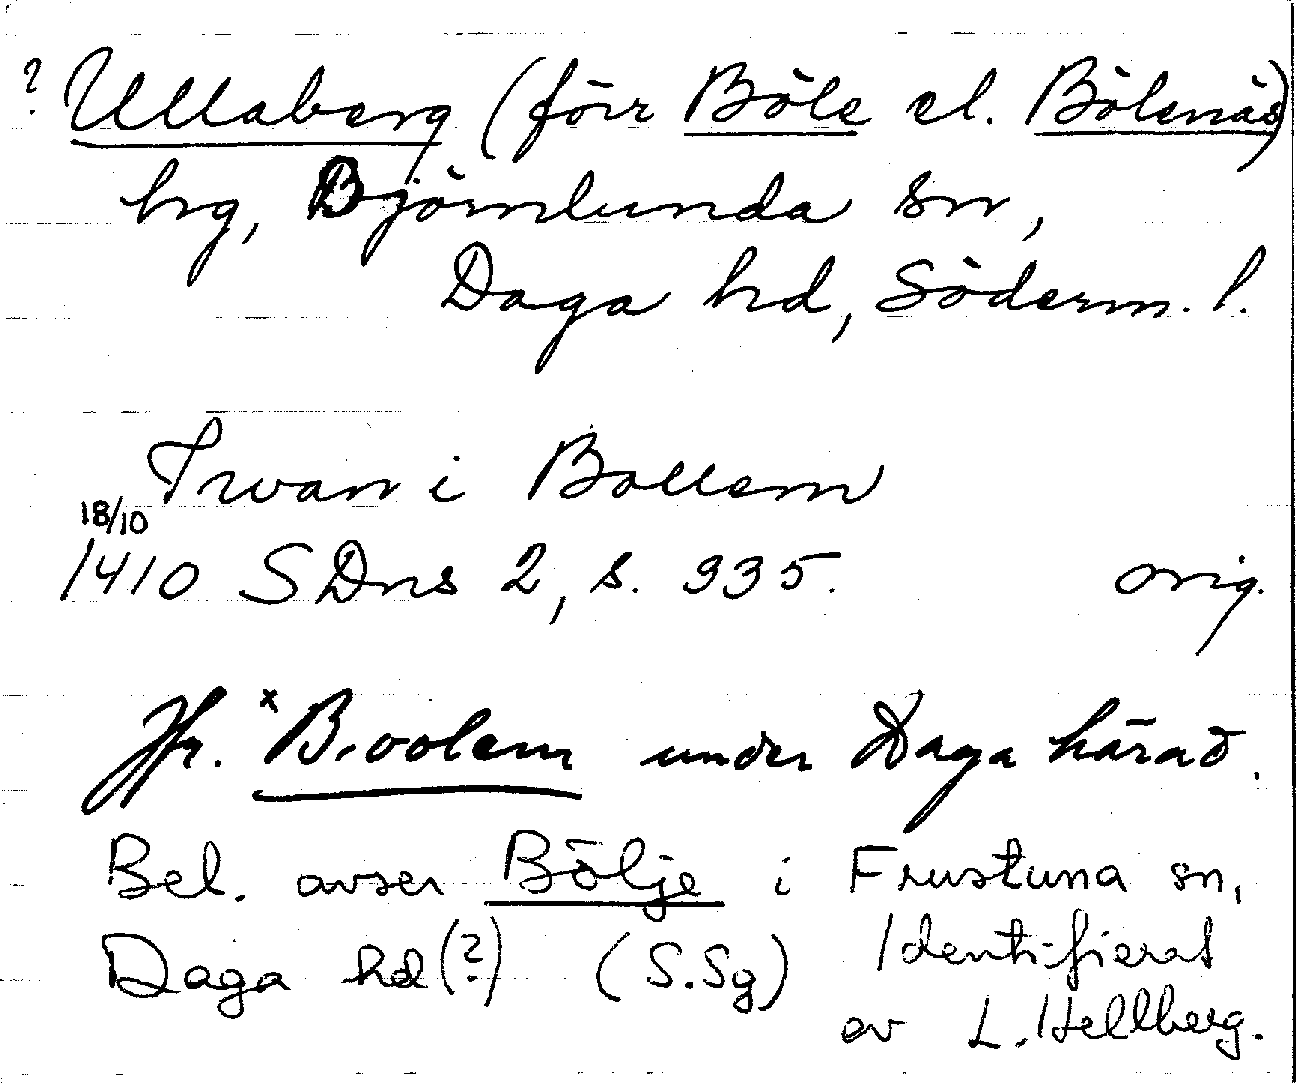 ? Ullaberg (förr Böle el. Bölenäs)
hg, Björnlunda sn,
Daga hd, Söderm. l.
Irvan i Bollem
18/10
1410 SDns 2, s. 335. orig.
Jfr. ˣBoolem under Daga härad.
Bel. avser Bölje i Frustuna sn,
Daga hd(?) (S.Sg) Identifierat
av L. Hellberg.